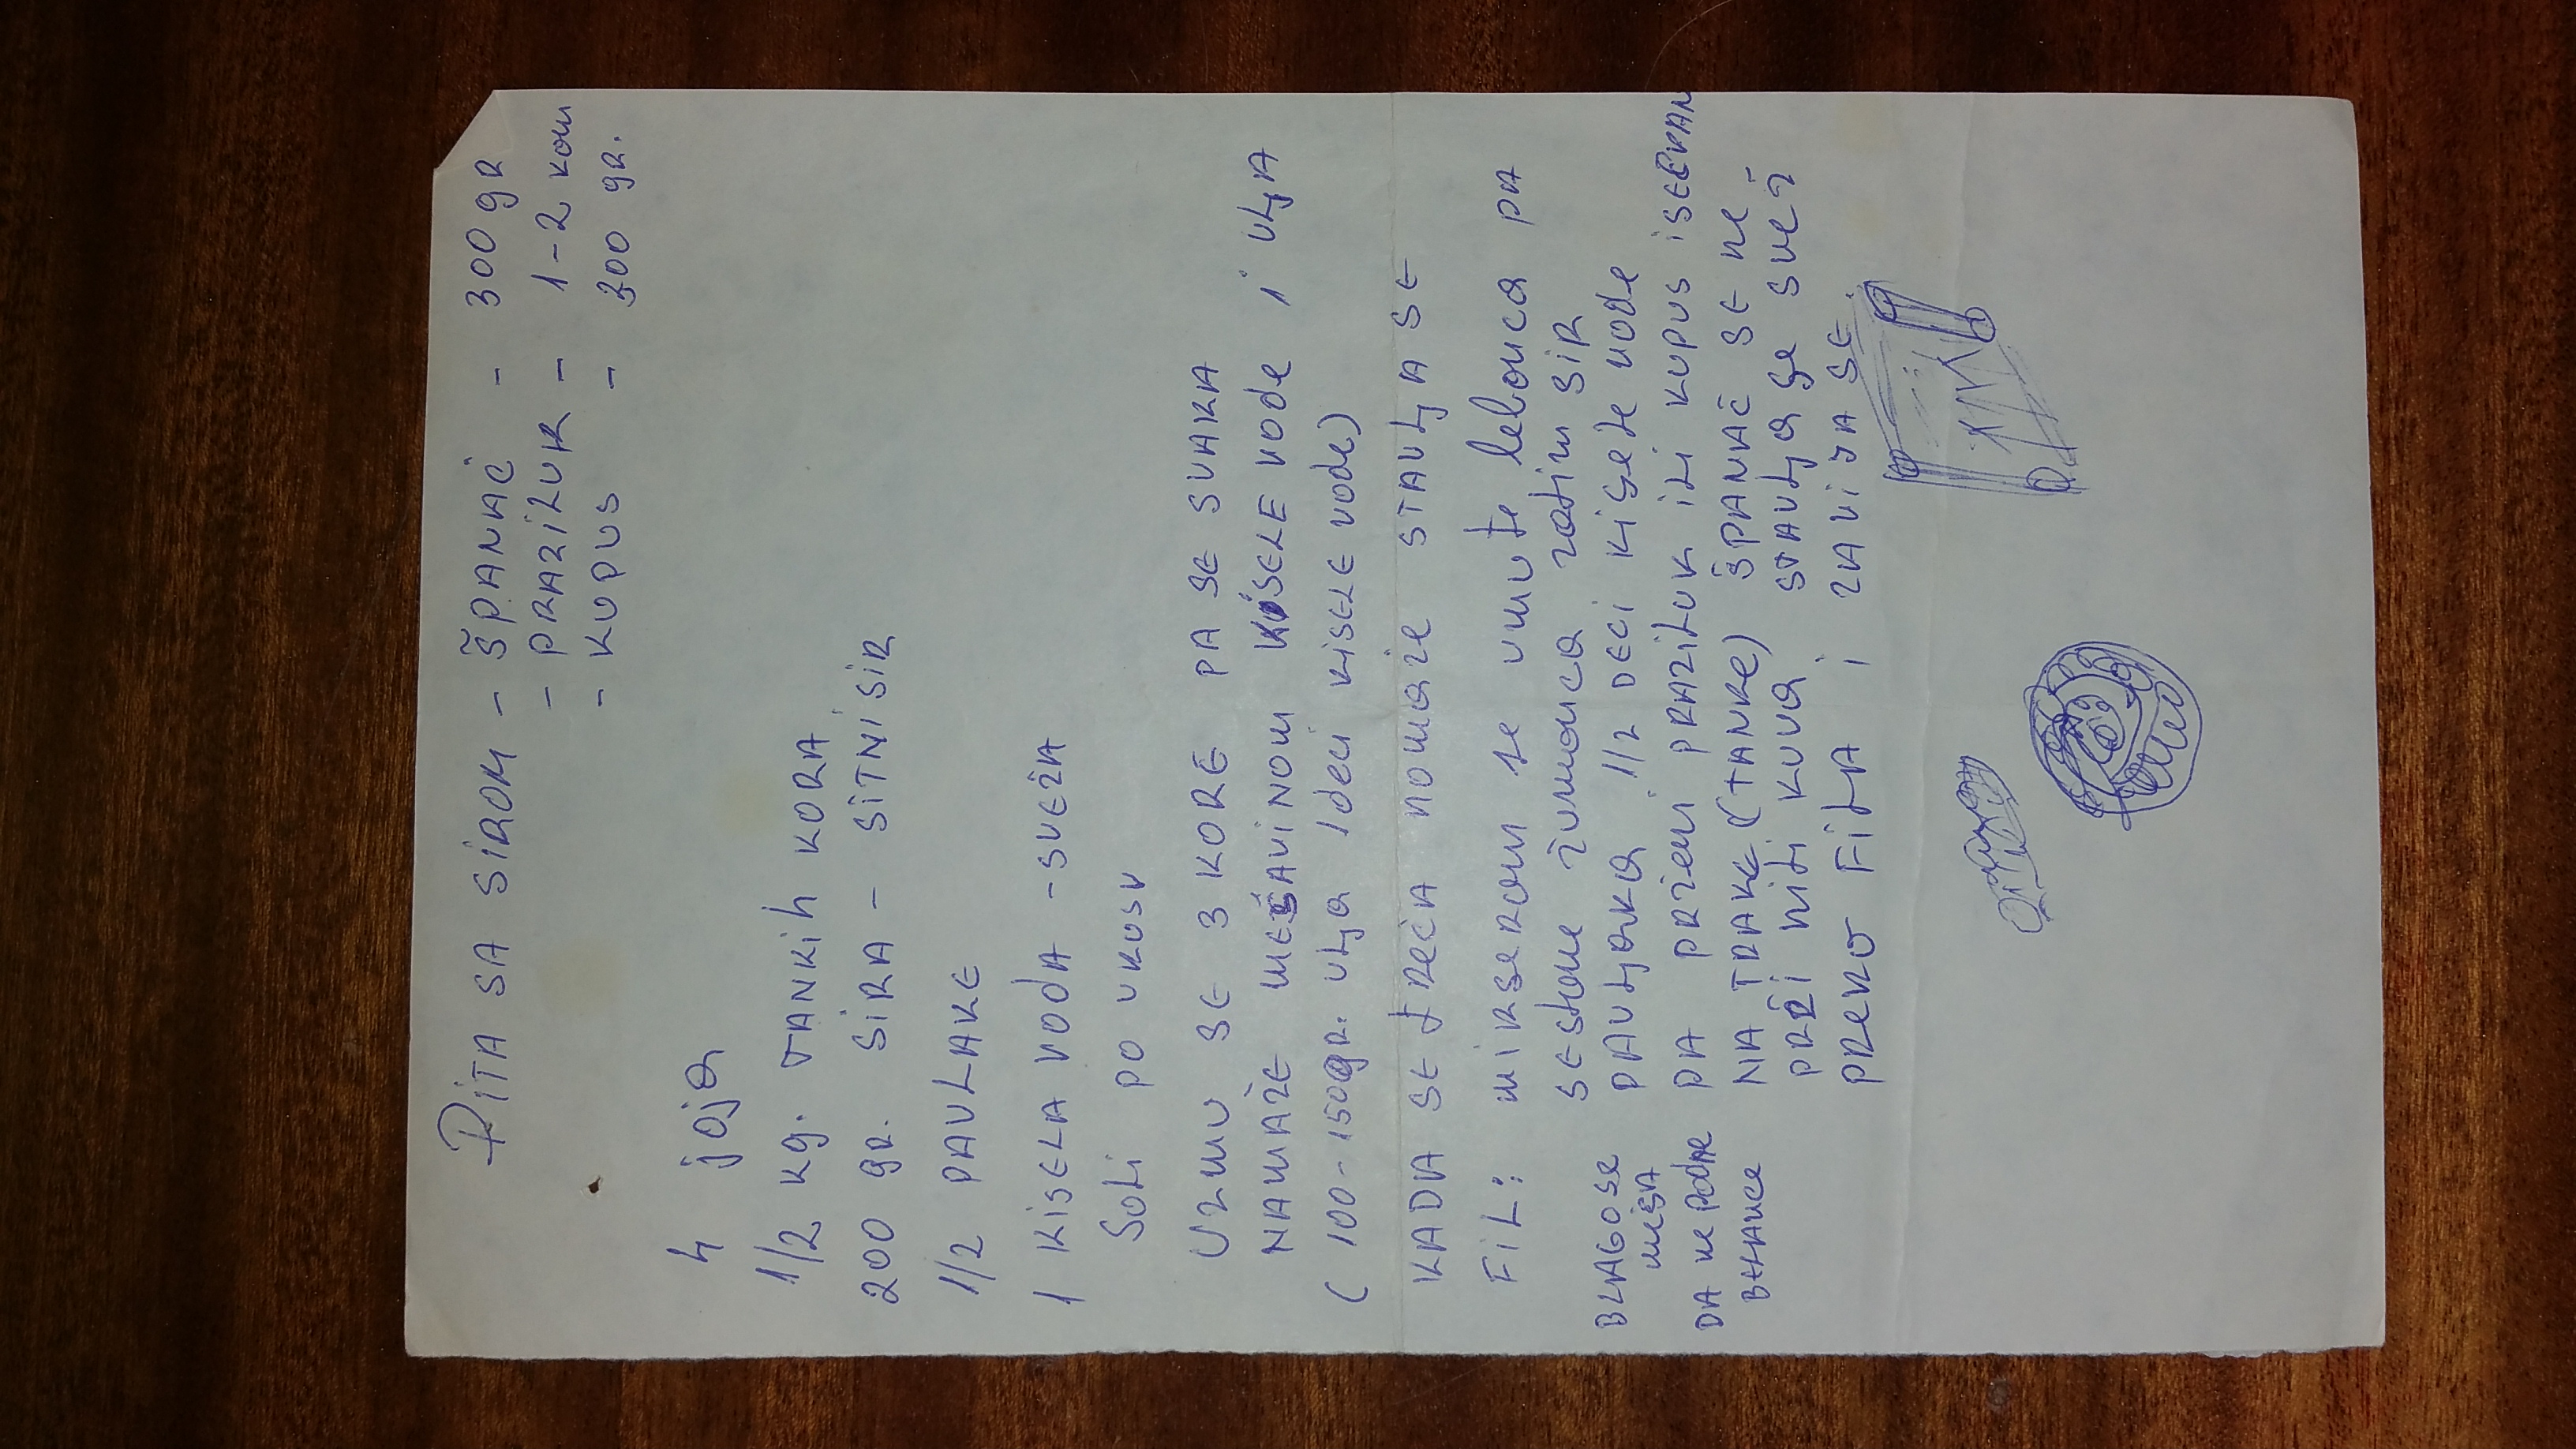 PITA SA SIROM - ŠPANAĆ - 300 gR
- PRAZILUK - 1-2 kom
- KUPUS - 300 gR.
4 jaja
1/2 kg. TANKih KORA
200 gR. SiRA - SiTNi SiR
1/2 PAVLAKE
1 KiSELA VODA - SVEŽA
Soli po ukusu
UZMU SE 3 KORE PA SE SVAKA
NAMAŽE MEŠAVINOM KiSELE VODE i ULjA
(100-150gR. ulja 1 deci KiSELE vode)
KADA SE TREĆA namaže STAVLjA SE
FiL: mikserom se umute belanca PA
SE stave žumanca zatim SiR
PAVLjAKA 1/2 DECi KiSELE vode
PA PRŽENi PRAZiLUK iLi KUPUS iSECKAN
NA TRAKE (TANKE) ŠPANAĆ SE NE
PRŽi NiTi KUVA STAVLjA SE SVEŽ
PREKO FiLA i ZAViJA SE.
BLAGO SE
MEŠA
DA NE PADNE
BELANCE